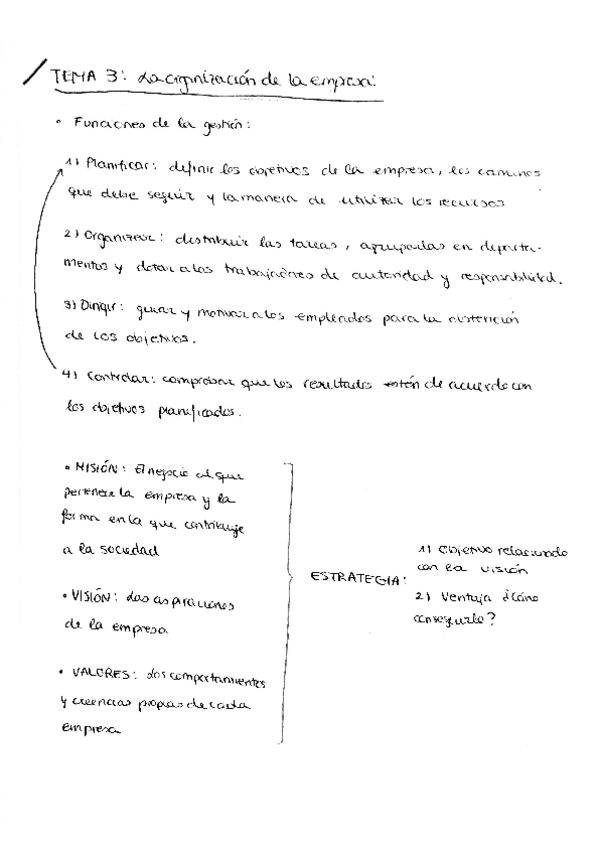 TEMA 3: La organización de la empresa:
• Funciones de la gestión:
1) Planificar: definir los objetivos de la empresa, los caminos
que debe seguir y la manera de utilizar los recursos
2) Organizar: distribuir las tareas, agruparlas en departa-
mentos y dotar a los trabajadores de autoridad y responsabilidad.
3) Dirigir: guiar y motivar a los empleados para la obtención
de los objetivos.
4) Controlar: comprobar que los resultados están de acuerdo con
los objetivos planificados.
• MISIÓN: El negocio al que
pertenece la empresa y la
forma en la que contribuye
a la sociedad
• VISIÓN: Las aspiraciones
de la empresa
• VALORES: Los comportamientos
y creencias propias de cada
empresa
ESTRATEGIA:
1) Objetivo relacionado
con la visión
2) Ventaja ¿Cómo
conseguirlo?